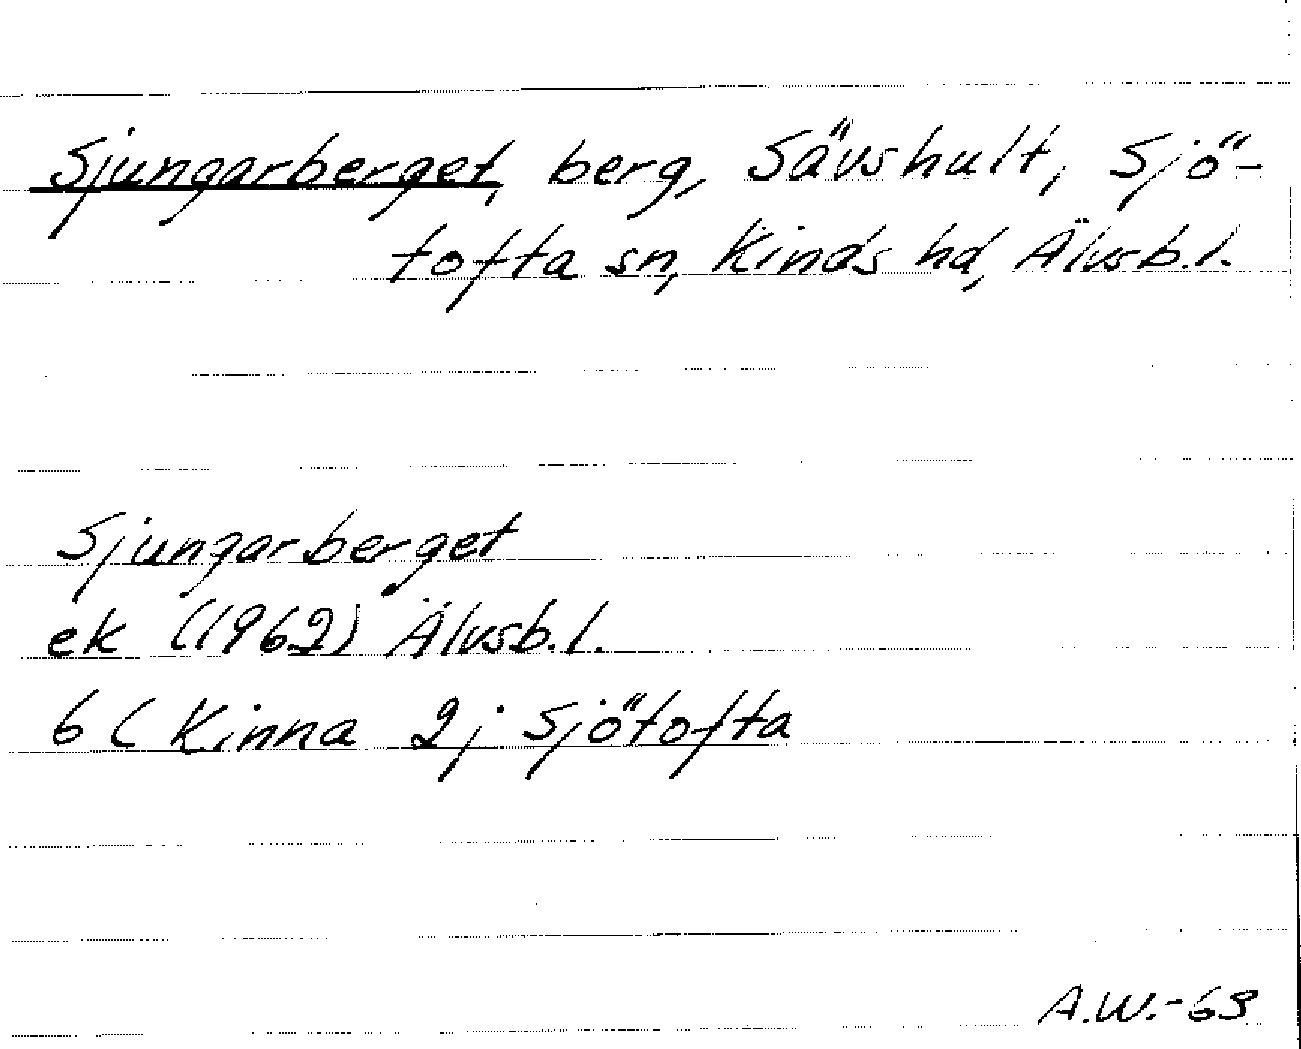 Sjungarberget, berg, Sävshult, Sjö-
tofta sn, Kinds hd, Älvsb.l.
Sjungarberget
ek (1962) Älvsb.l.
6 C Kinna 2j Sjötofta
A.W.-63